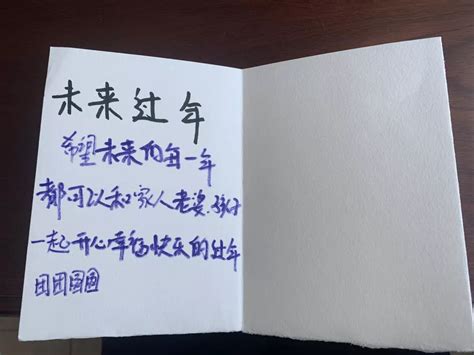 未来过年
希望未来的每一年
都可以和家人老婆.孩子
一起开心幸福快乐的过年
团团圆圆